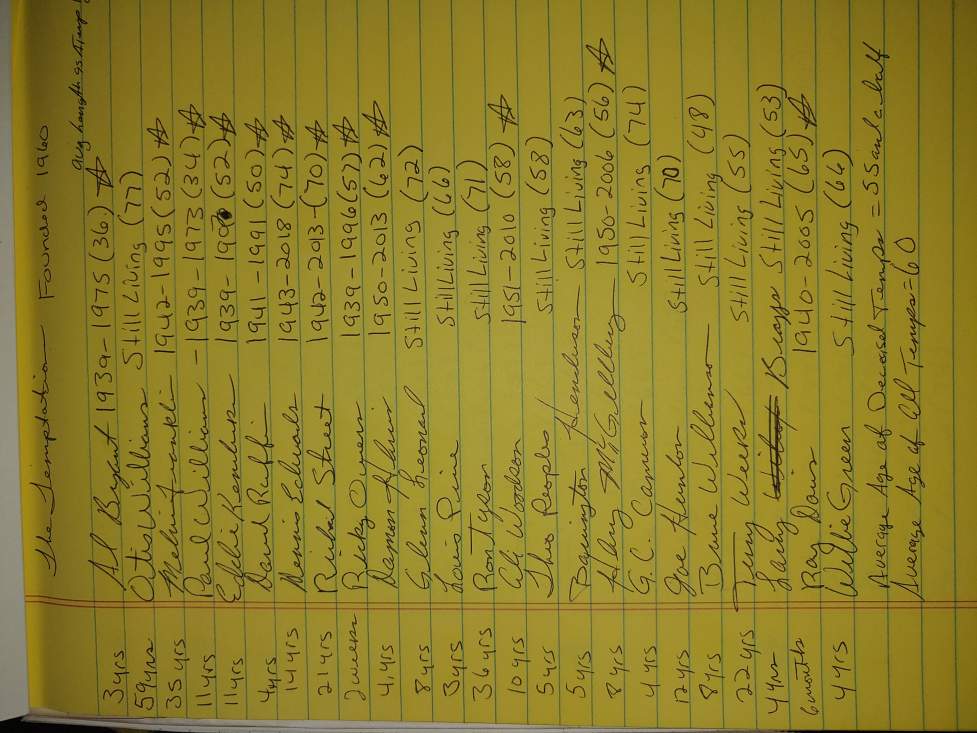 The Temptation Founded 1960
avg length as a Temp
3 yrs Al Bryant 1939-1975 (36.) ☆
59 yrs Otis Williams Still Living (77)
35 yrs Melvin Franklin 1942-1995 (52) ☆
11 yrs Paul Williams - 1939-1973 (34) ☆
11 yrs Eddie Kendricks 1939- (52) ☆
4 yrs David Ruffin 1941-1991 (50) ☆
14 yrs Dennis Edwards 1943-2018 (74) ☆
21 yrs Richard Street 1942-2013-(70) ☆
2 weeks Ricky Owens 1939-1996 (57) ☆
4 yrs Damon Harris 1950-2013 (62) ☆
8 yrs Glenn Leonard Still Living (72)
3 yrs Louis Price Still Living (66)
36 yrs Ron Tyson Still Living (71)
10 yrs Ali Woodson 1951-2010 (58) ☆
5 yrs Theo Peoples Still Living (58)
5 yrs Barrington Henderson - Still Living (63)
8 yrs Harry McGilberry - 1950-2006 (56) ☆
4 yrs G.C. Cameron Still Living (74)
12 yrs Joe Herndon Still Living (70)
8 yrs Bruce Williamson Still Living (48)
22 yrs Terry Weeks Still Living (55)
4 yrs Larry Braggs Still Living (53)
6 months Ray Davis 1940-2005 (65) ☆
4 yrs Willie Green Still Living (66)
Average Age of Deceased Temps = 55 and a half
Average Age of All Temps = 60